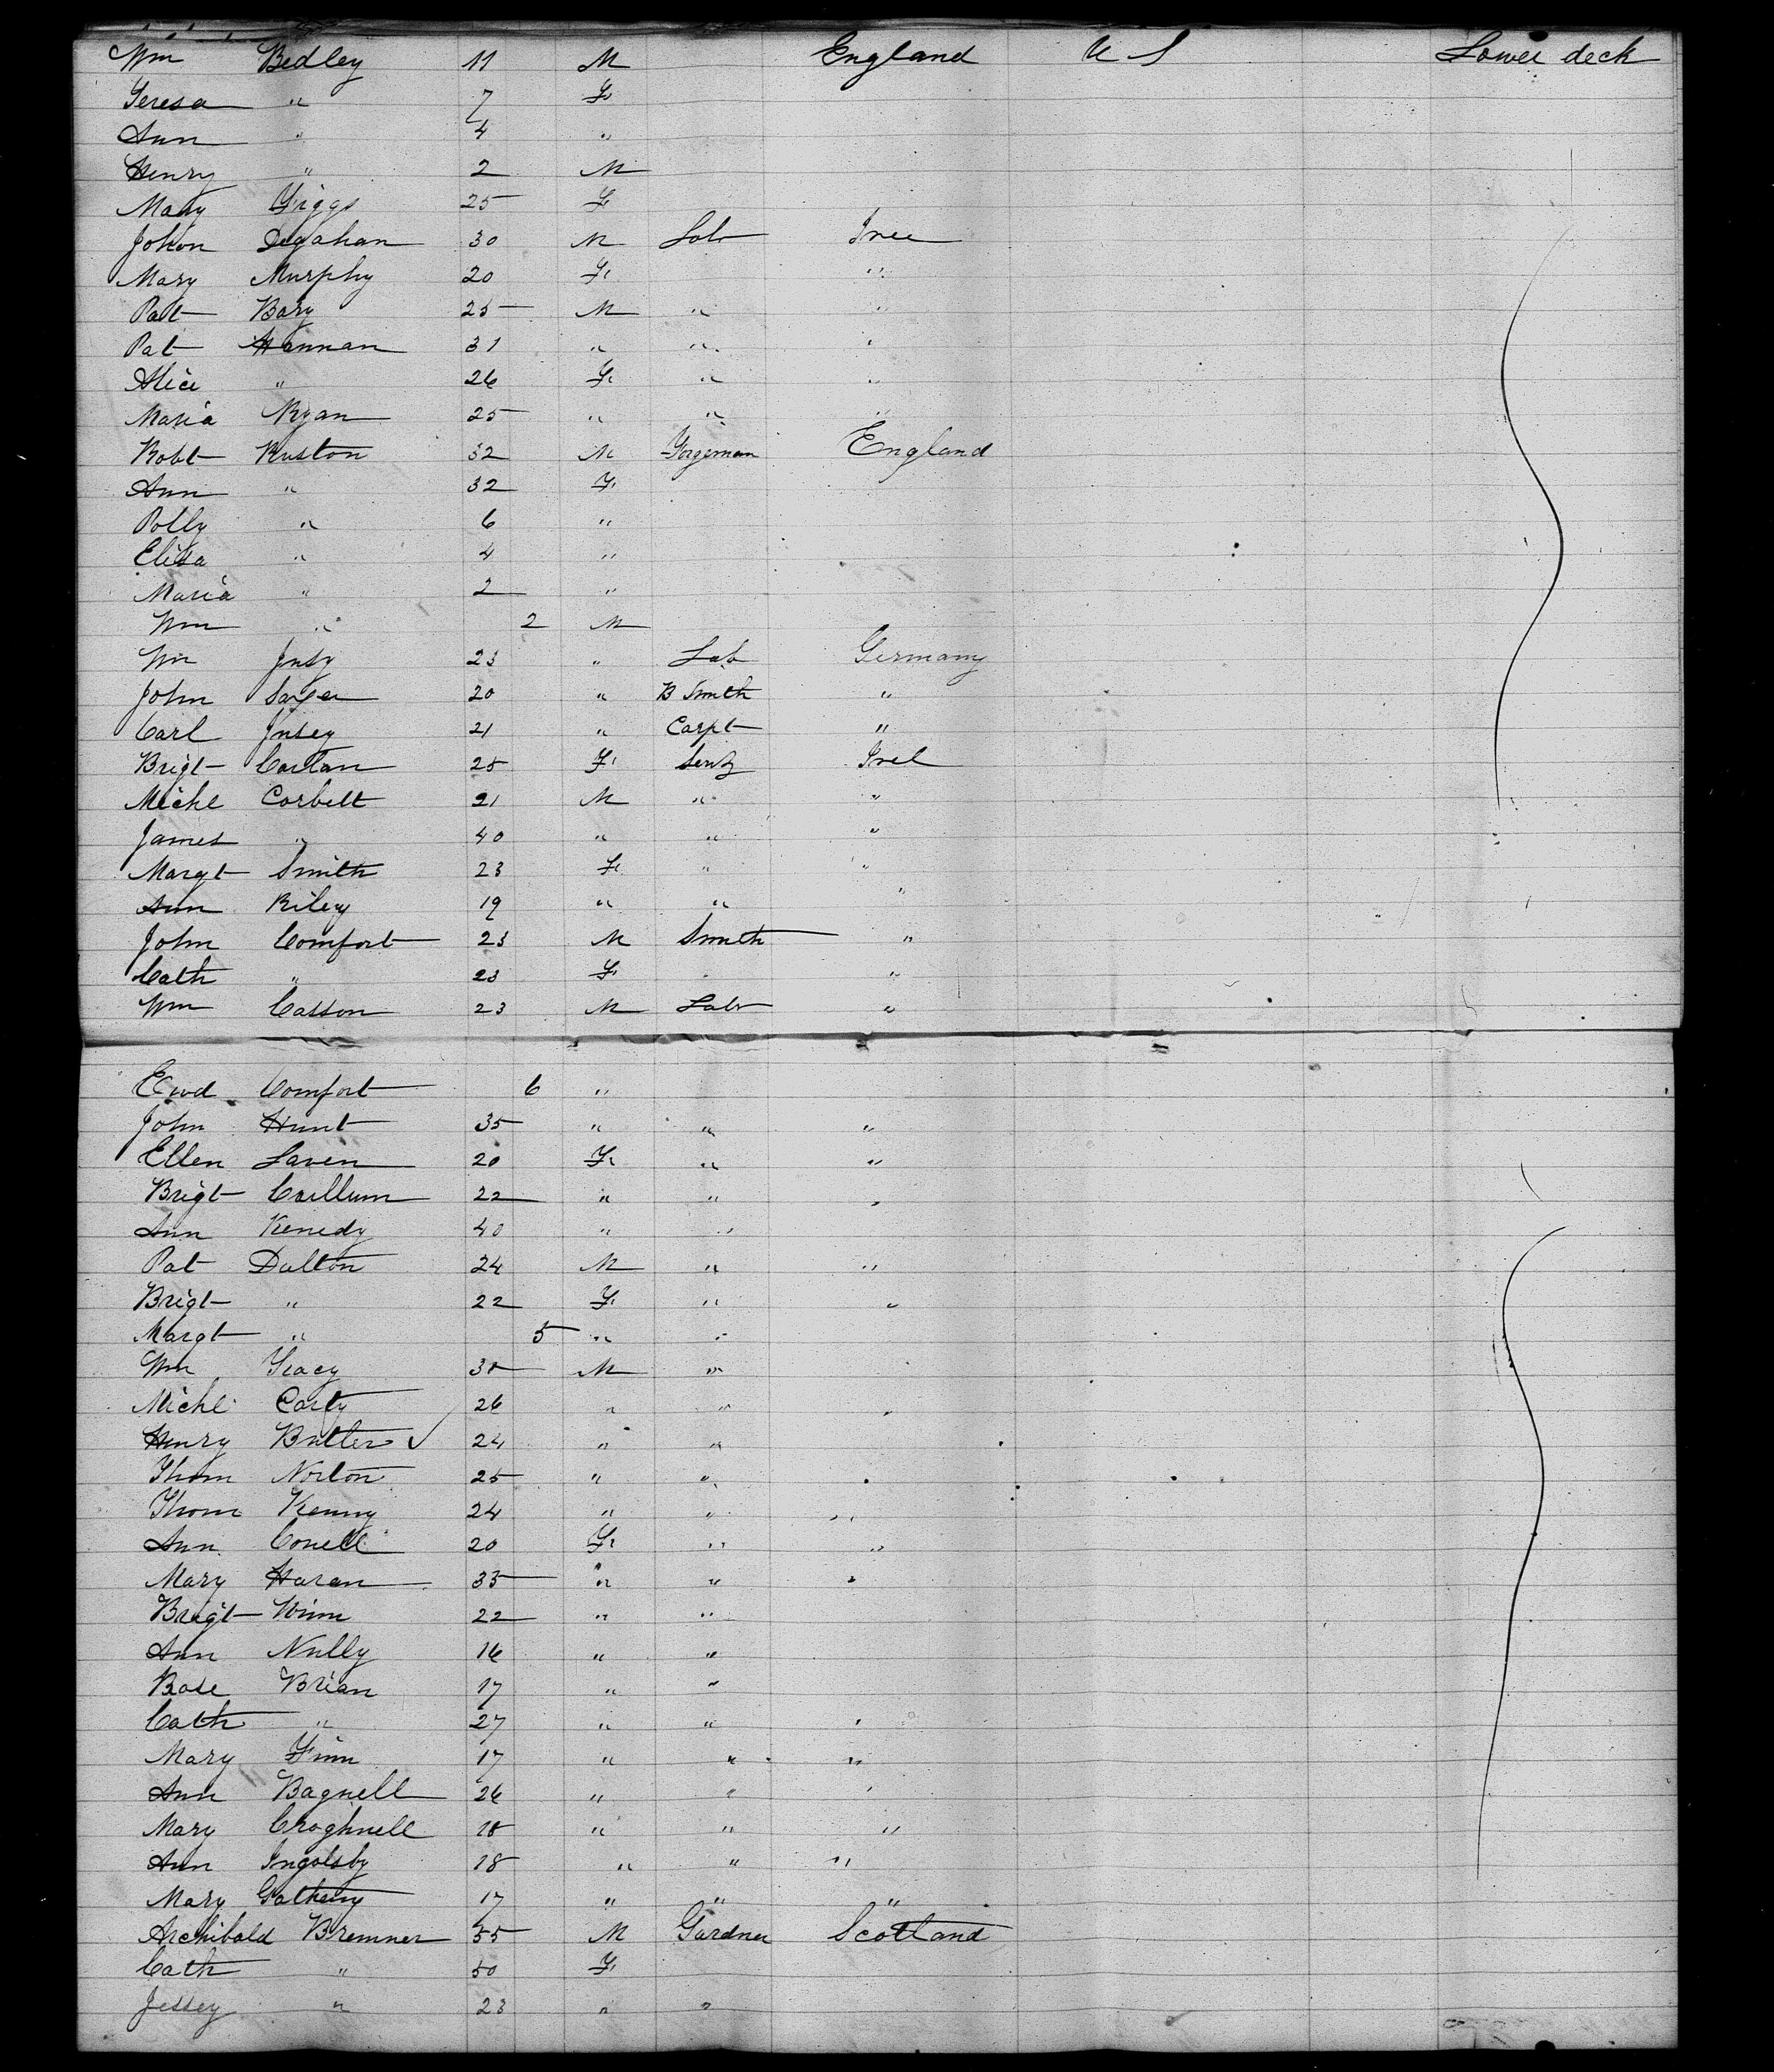 Wm Bedley 11 M England U S Lower deck
Teresa " 7 F
Ann " 4 "
Henry " 2 M
Mary Griggs 25 F
John Degahan 30 M Lab Irel
Mary Murphy 20 F "
Pat Bary 25 M " "
Pat Hannan 31 " " "
Alice " 26 F " "
Maria Ryan 25 " " "
Robt Ruston 32 M Forgeman England
Ann " 32 F
Polly " 6 "
Elisa " 4 "
Maria " 2 "
Wm " 2 M
Wm 23 " Lab Germany
John 20 " B Smith "
Carl Insey 21 " Carpt "
Brigt Carlan 25 F Servt Irel
Michl Corbett 21 M " "
James " 40 " " "
Margt Smith 23 F " "
Ann Riley 19 " " "
John Comfort 23 M Smith "
Cath " 23 F " "
Wm Casson 23 M Labr "
Ewd Comfort 6 "
John Hunt 35 " " "
Ellen Laven 20 F " "
Brigt Caillum 22 " " "
Ann Kenedy 40 " "
Pat Dalton 24 M " "
Brigt " 22 F " "
Margt " 5 " "
Wm Tracy 30 M "
Michl Carty 26 " " "
Henry Butler ✓ 24 " "
Thom Norton 25 " " "
Thom Kenny 24 " " "
Ann Conell 20 F " "
Mary Haran 33 " " "
Brigt Winn 22 " "
Ann Nully 16 " "
Rose Brian 17 " "
Cath " 27 " " "
Mary Finn 17 " " "
Ann Bagnell 26 " " "
Mary Croghnell 18 " " "
Ann Ingolsby 18 " " "
Mary Gatheny 17 " " "
Archibald Bremner 55 M Gardner Scotland
Cath " 50 F
Jessey " 23 " "